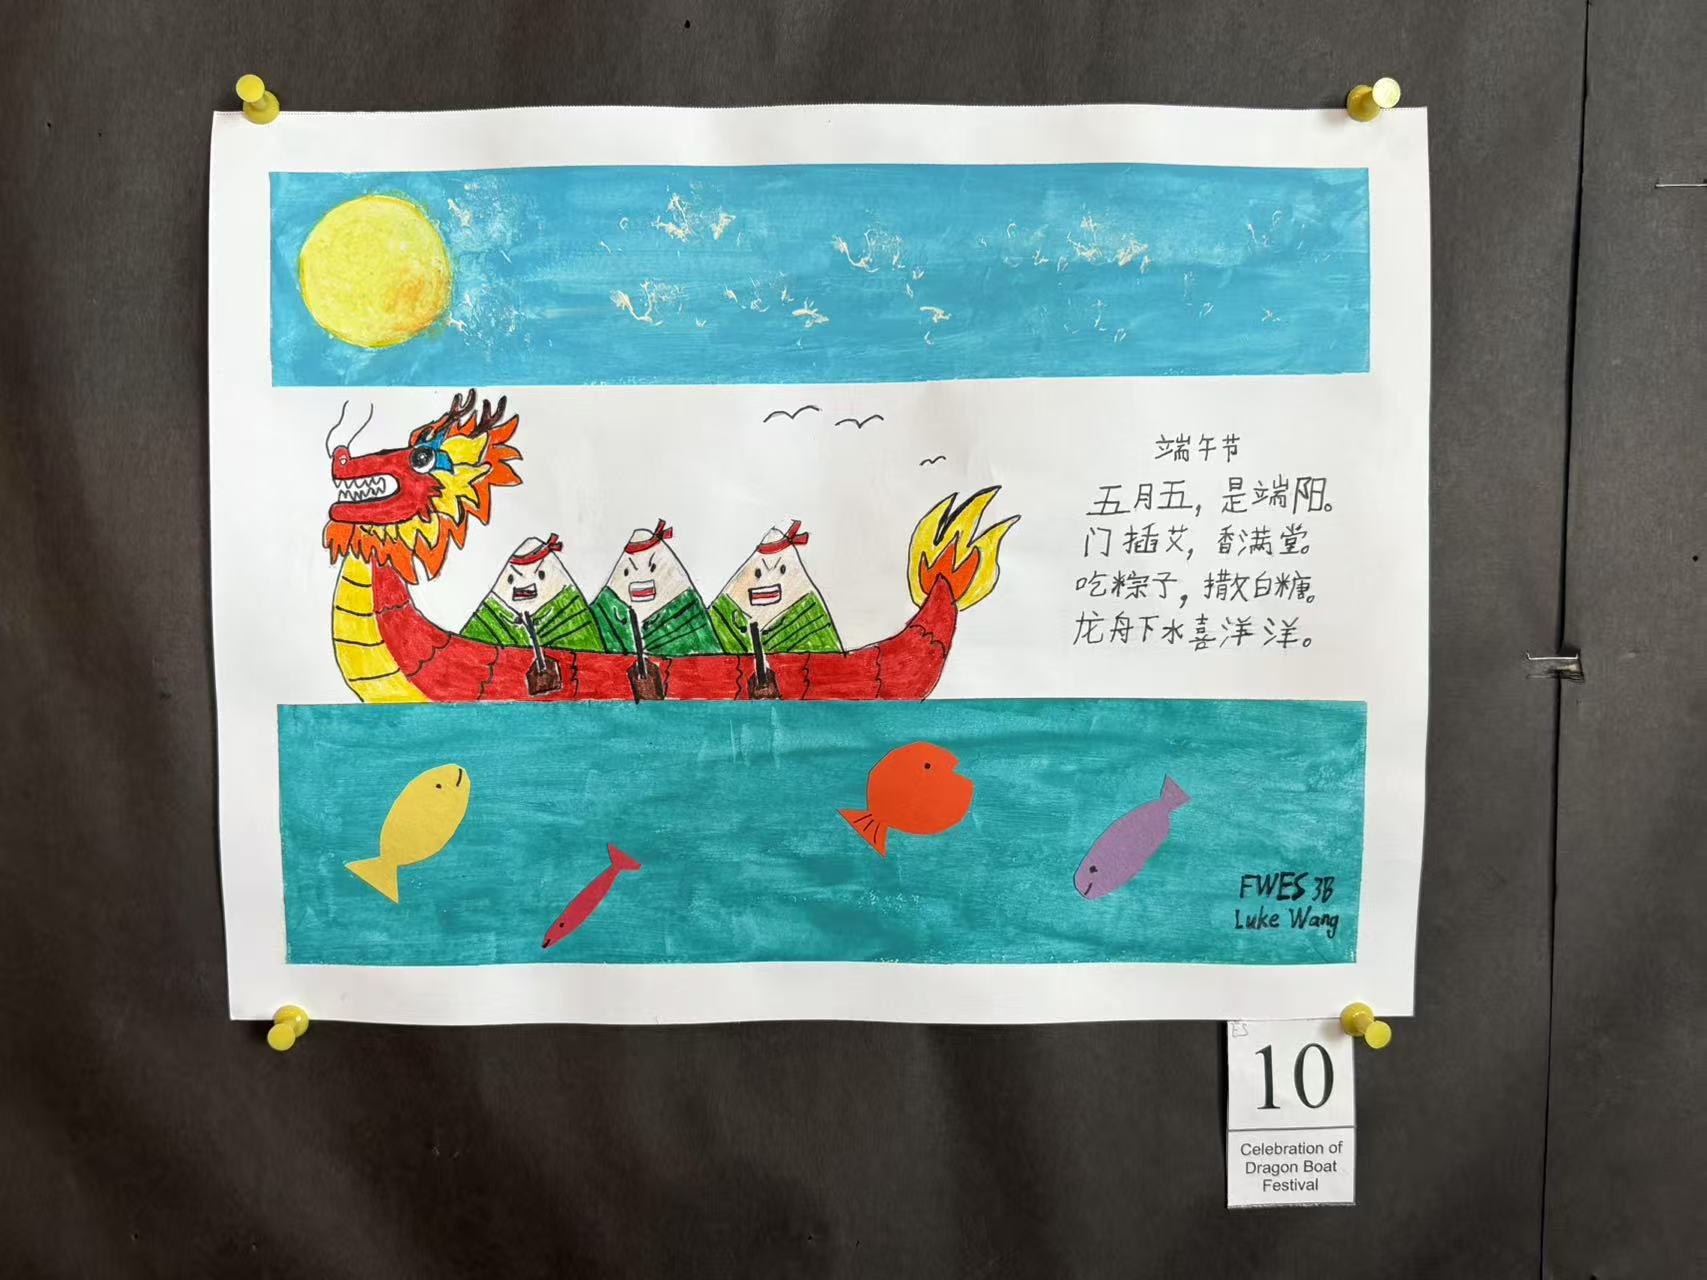 端午节
五月五，是端阳。
门插艾，香满堂。
吃粽子，撒白糖。
龙舟下水喜洋洋。
FWES 3B
Luke Wang
ES
10
Celebration of
Dragon Boat
Festival